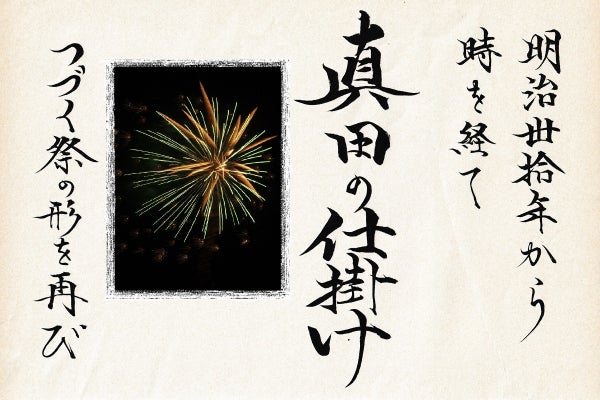 明治卅拾年から
時を経て
真田の仕掛け
つづく祭の形を再び